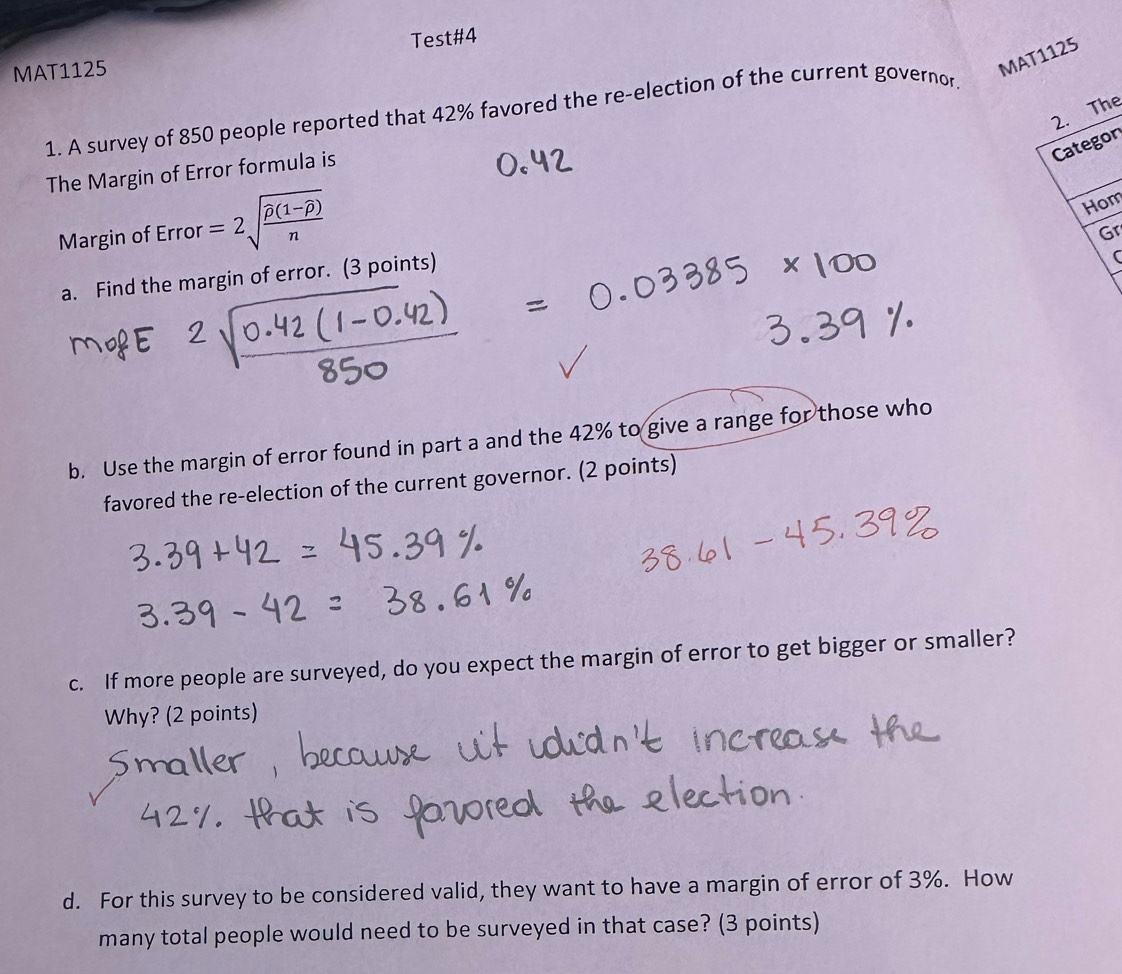 Test#4
MAT1125
MAT1125
1. A survey of 850 people reported that 42% favored the re-election of the current governor.
0.42
The Margin of Error formula is
Margin of Error = 2√(p̂(1−p̂)/n)
a. Find the margin of error. (3 points)
mofE 2√(0.42(1-0.42)/850) = 0.03385 × 100
3.39%
✓
b. Use the margin of error found in part a and the 42% to give a range for those who
favored the re-election of the current governor. (2 points)
3.39+42 = 45.39%
38.61 - 45.39%
3.39 - 42 = 38.61%
c. If more people are surveyed, do you expect the margin of error to get bigger or smaller?
Why? (2 points)
Smaller, because it didn't increase the
✓
42% that is favored the election.
d. For this survey to be considered valid, they want to have a margin of error of 3%. How
many total people would need to be surveyed in that case? (3 points)
2. The
Categor
Hom
Gr